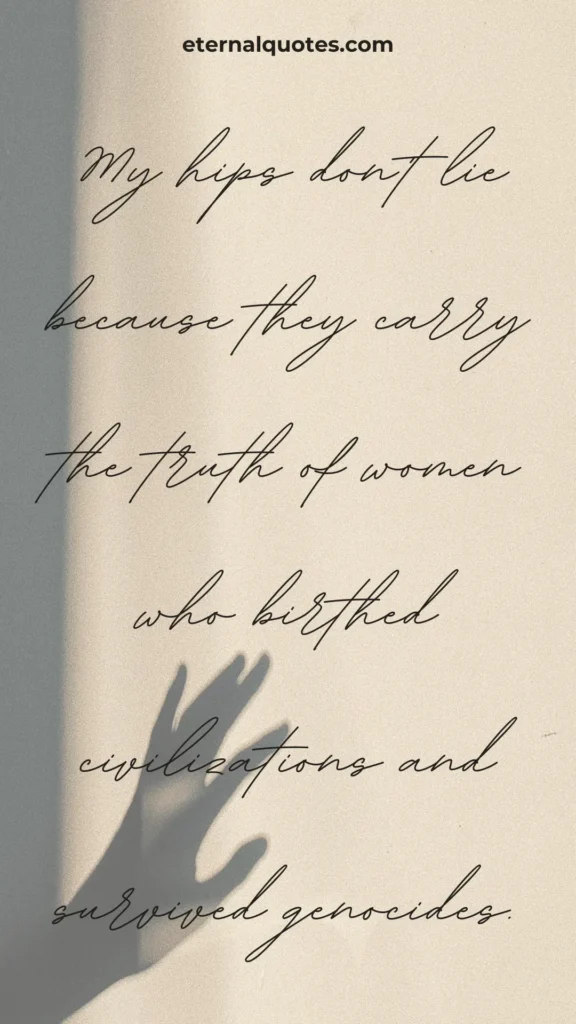 eternalquotes.com
My hips don't lie
because they carry
the truth of women
who birthed
civilizations and
survived genocides.